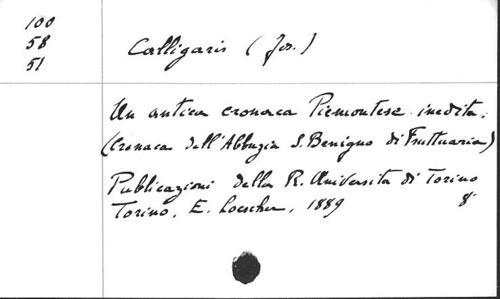 100
58
51
Calligaris (Jos.)
Un antica cronaca Piemontese inedita.
(Cronaca dell'Abbazia S. Benigno di Fruttuaria)
Publicazioni della R. Universita di Torino
Torino, E. Loescher, 1889 8°